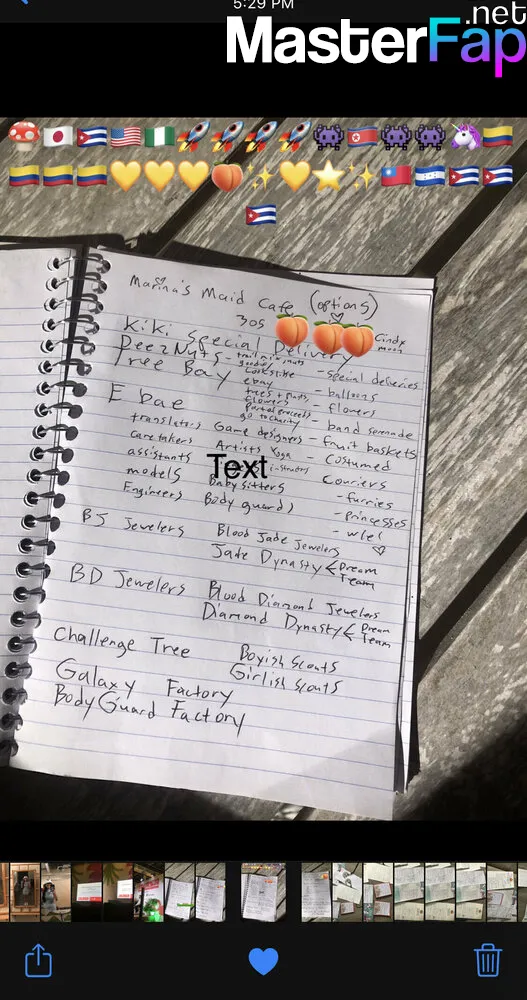 5:29 PM
MasterFap
.net
Marina's Maid Cafe (options)
305
Cindy moon
Kiki Special Delivery
DeezNuts - trail mix, nuts
goodies
Tree Bay
looks like
ebay
trees + plants
flowers
partial proceeds
go to charity
- special deliveries
- balloons
- flowers
- band serenade
- fruit baskets
- Costumed
Couriers
- furries
- princesses
E bae
translators Game designers
caretakers Artists Yoga
instructors
assistants
Text
models Baby sitters
Engineers Body guards
BJ Jewelers Blood Jade Jewelers
Jade Dynasty < Dream
Team
BD Jewelers Blood Diamond Jewelers
Diamond Dynasty < Dream
Team
Challenge Tree Boyish Scouts
Girlish Scouts
Galaxy Factory
BodyGuard Factory